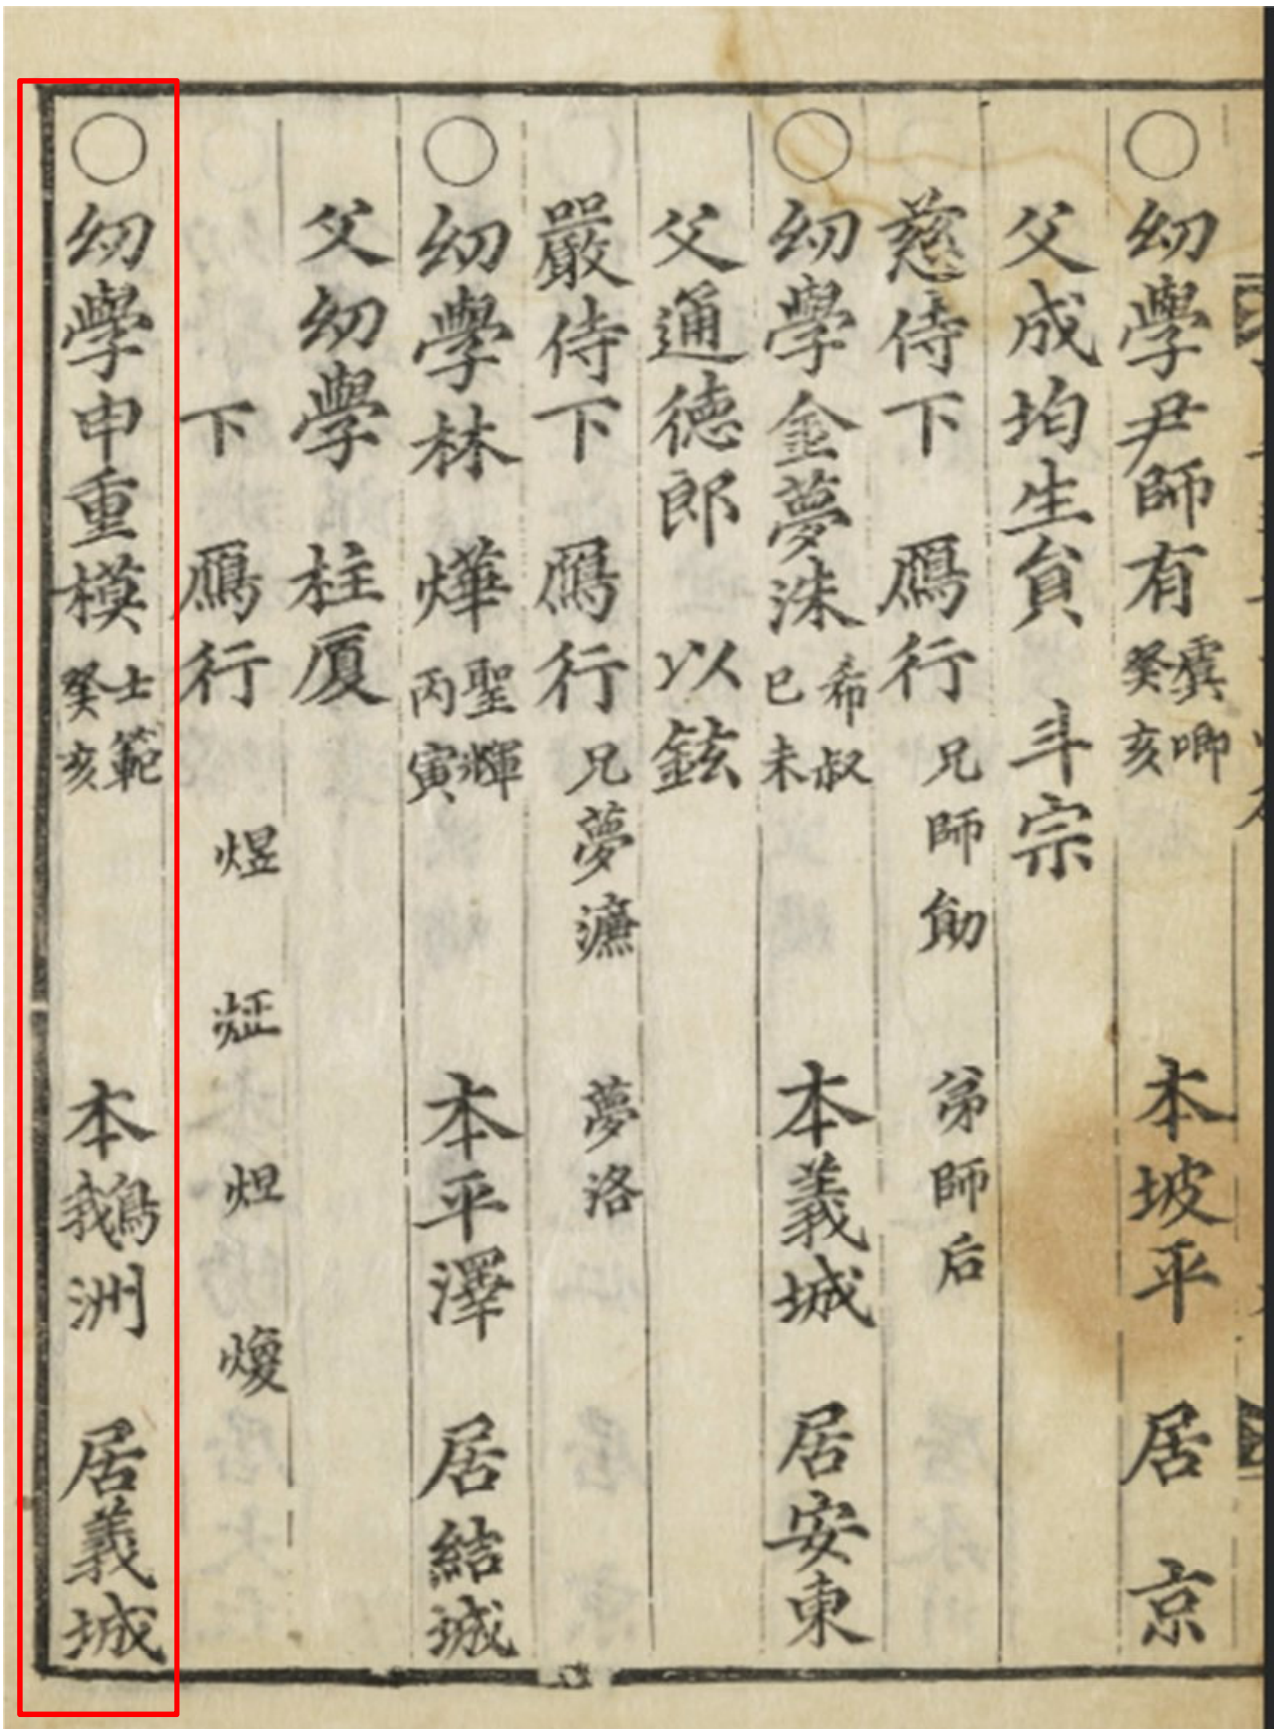 ○幼學尹師有 虞卿 癸亥 本坡平 居 京
父成均生員 斗宗
慈侍下 鴈行 兄師勛 弟師后
○幼學金夢洙 希叔 己未 本義城 居安東
父通德郎 以鉉
嚴侍下 鴈行 兄夢濂 夢洛
○幼學林 燁 聖輝 丙寅 本平澤 居結城
父幼學 柱厦
下 鴈行 煜 炡 烜 煥
○幼學申重模 士範 癸亥 本鵝洲 居義城